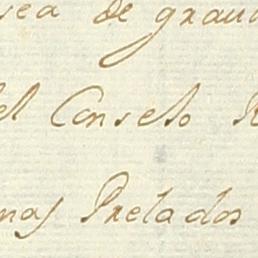 sea de grau
el Conselo R
mas Prelados